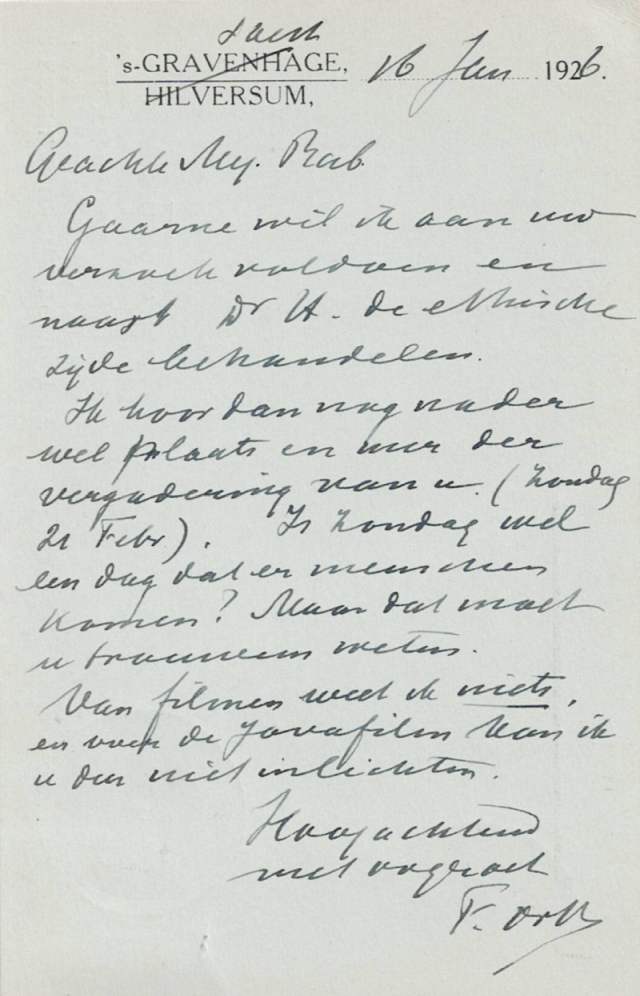 Soest
's-GRAVENHAGE, 16 Jan 1926.
HILVERSUM,
Geachte Mej. Rab
Gaarne wil ik aan uw
verzoek voldoen en
naast Dr H. de ethische
zijde behandelen.
Ik hoor dan nog nader
wel plaats en uur der
vergadering van u. (Zondag
21 Febr). Is Zondag wel
een dag dat er menschen
komen? Maar dat moet
u trouwens weten.
Van filmen weet ik niets,
en over de Javafilm kan ik
u dus niet inlichten.
Hoogachtend
met groet
F. Ortt